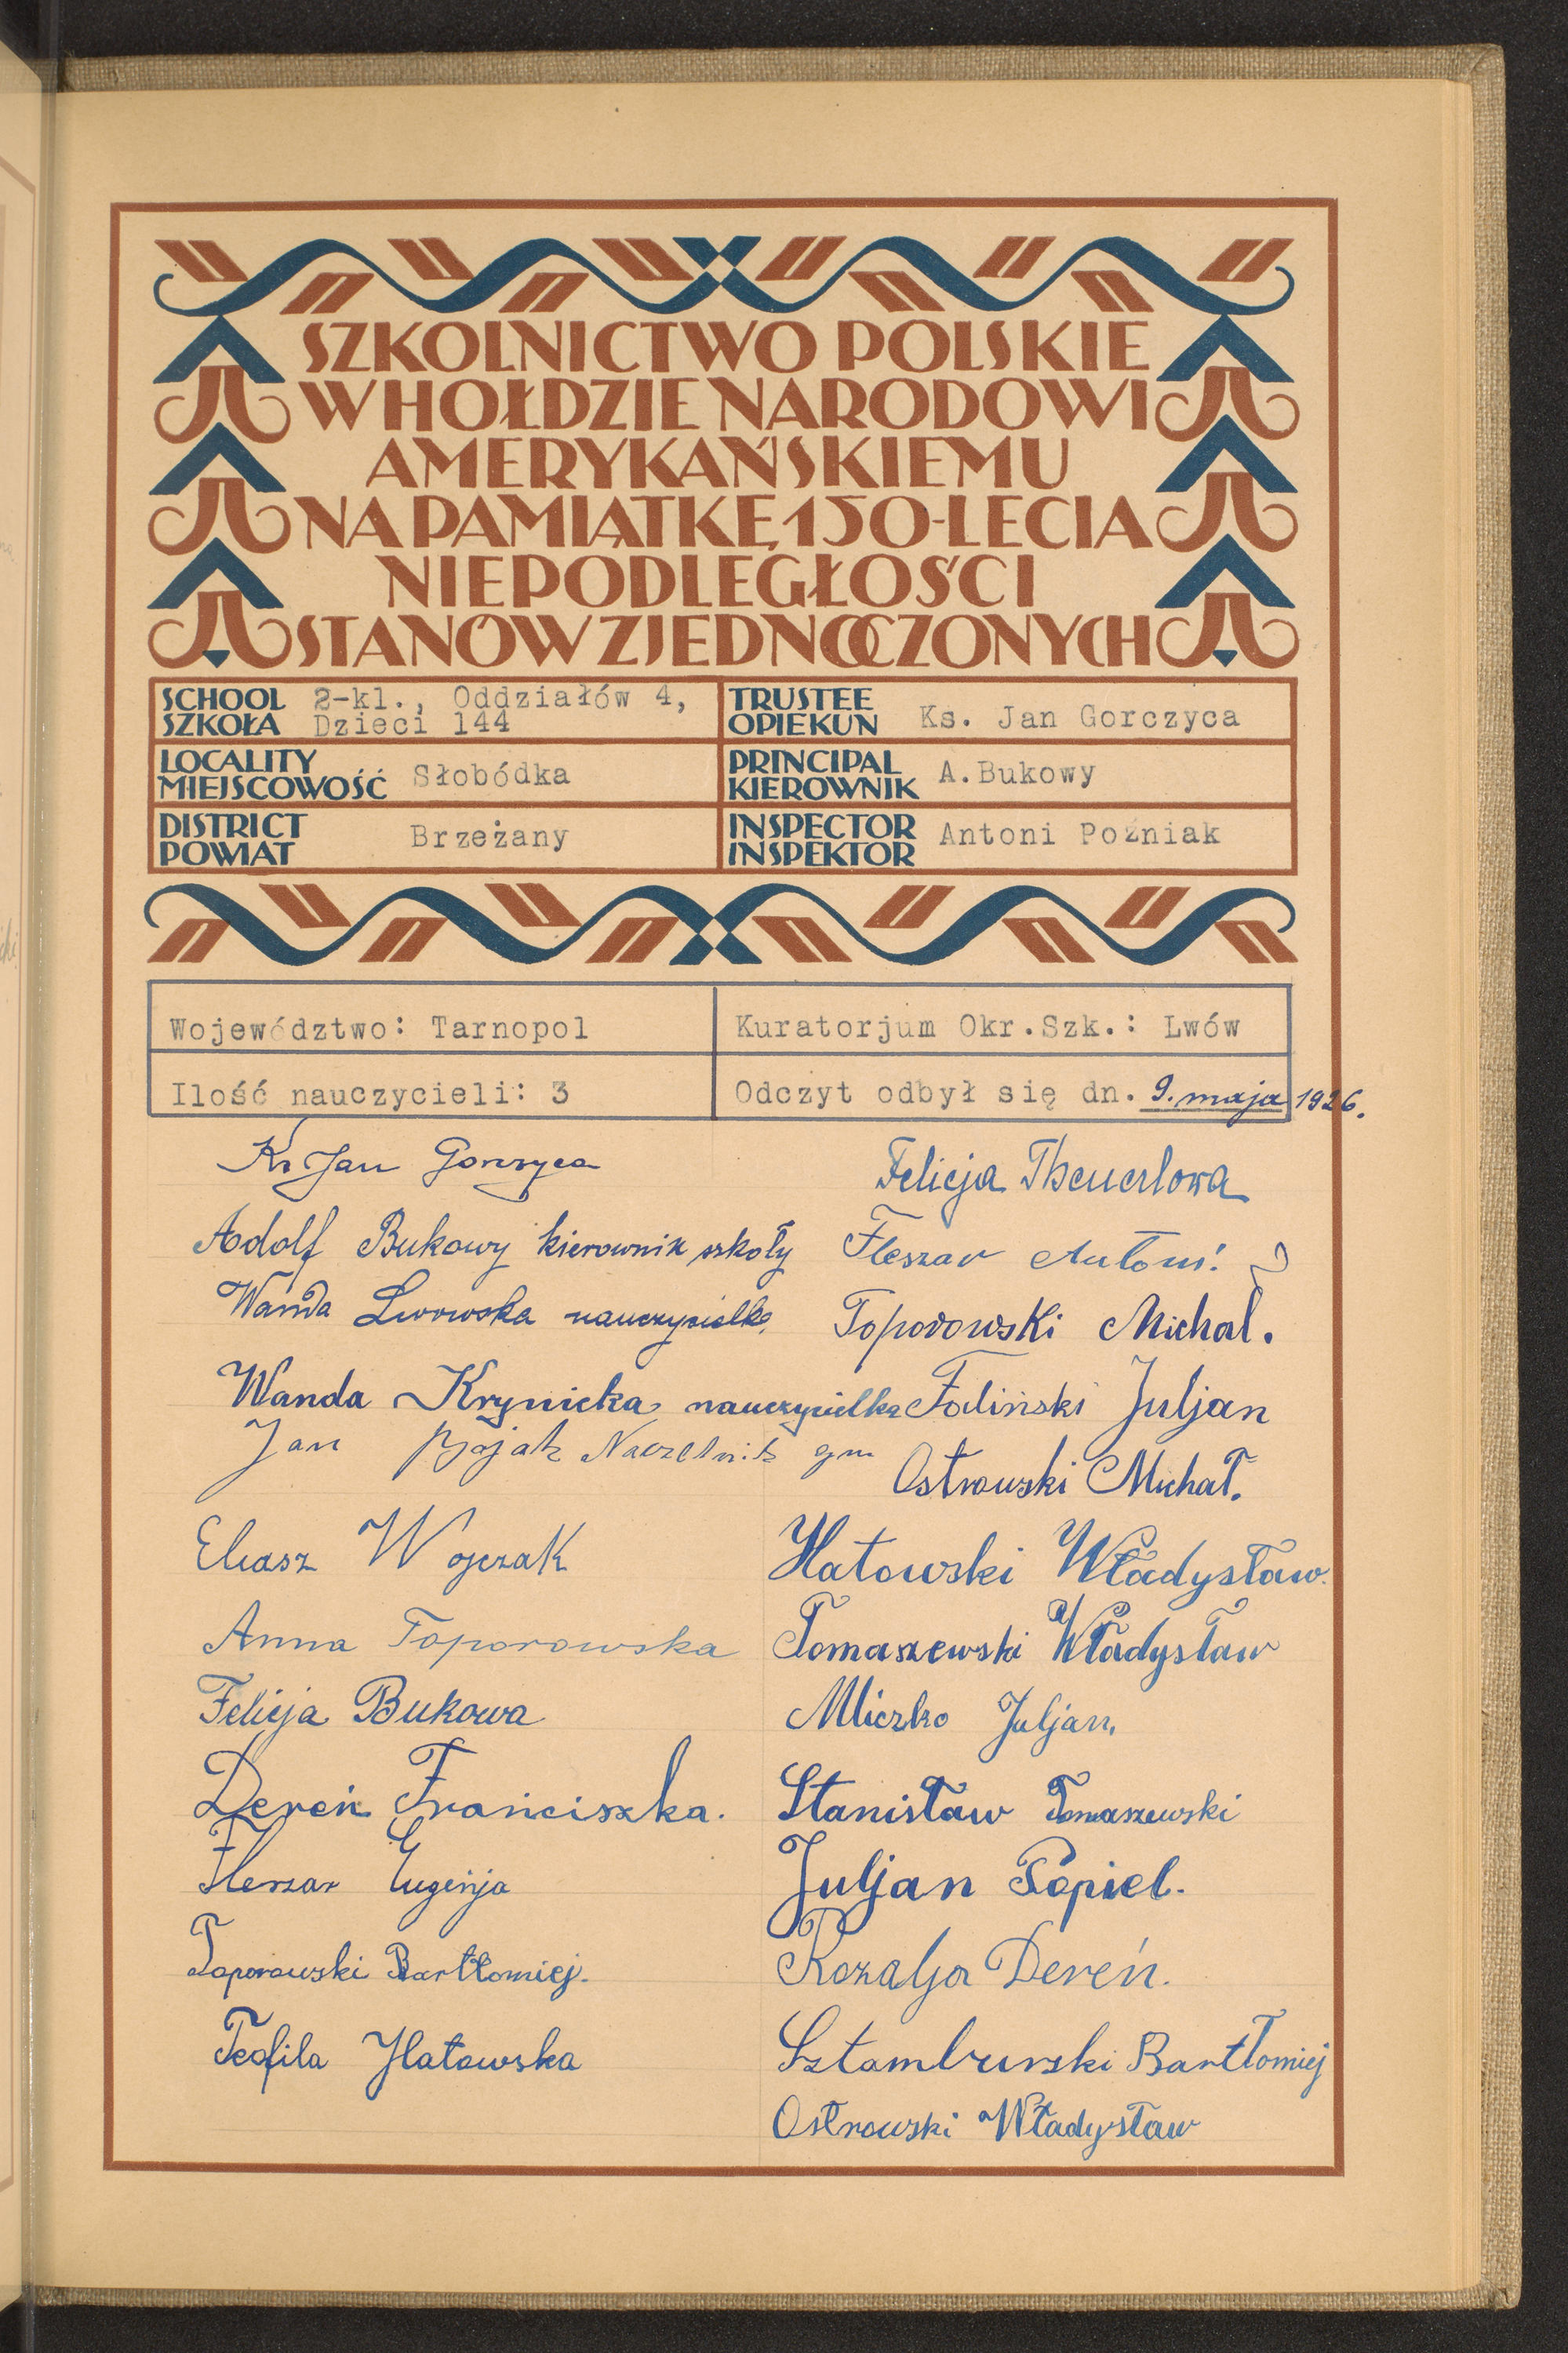 SZKOLNICTWO POLSKIE
W HOŁDZIE NARODOWI
AMERYKAŃSKIEMU
NA PAMIĄTKĘ 150-LECIA
NIEPODLEGŁOŚCI
STANÓW ZJEDNOCZONYCH
SCHOOL
SZKOŁA
2-kl., Oddziałów 4,
Dzieci 144
TRUSTEE
OPIEKUN
Ks. Jan Gorczyca
LOCALITY
MIEJSCOWOŚĆ
Słobódka
PRINCIPAL
KIEROWNIK
A.Bukowy
DISTRICT
POWIAT
Brzeżany
INSPECTOR
INSPEKTOR
Antoni Poźniak
Województwo: Tarnopol
Kuratorjum Okr.Szk.: Lwów
Ilość nauczycieli: 3
Odczyt odbył się dn. 9. maja 1926.
Ks Jan Gorczyca
Adolf Bukowy kierownik szkoły
Wanda Lwowska nauczycielka
Wanda Krynicka nauczycielka
Jan Naczelnik gm
Eliasz Wojczak
Anna Toporowska
Felicja Bukowa
Dereń Franciszka.
Fleszar Eugenja
Toporowski Bartłomiej.
Teofila Hatowska
Felicja Theuerlowa
Fleszar Antoni
Toporowski Michal.
Foliński Juljan
Ostrowski Michał.
Hatowski Władysław.
Tomaszewski Władysław
Mliczko Juljan,
Stanisław Tomaszewski
Juljan Popiel.
Rozalja Dereń.
Sztamburski Bartłomiej
Ostrowski Władysław